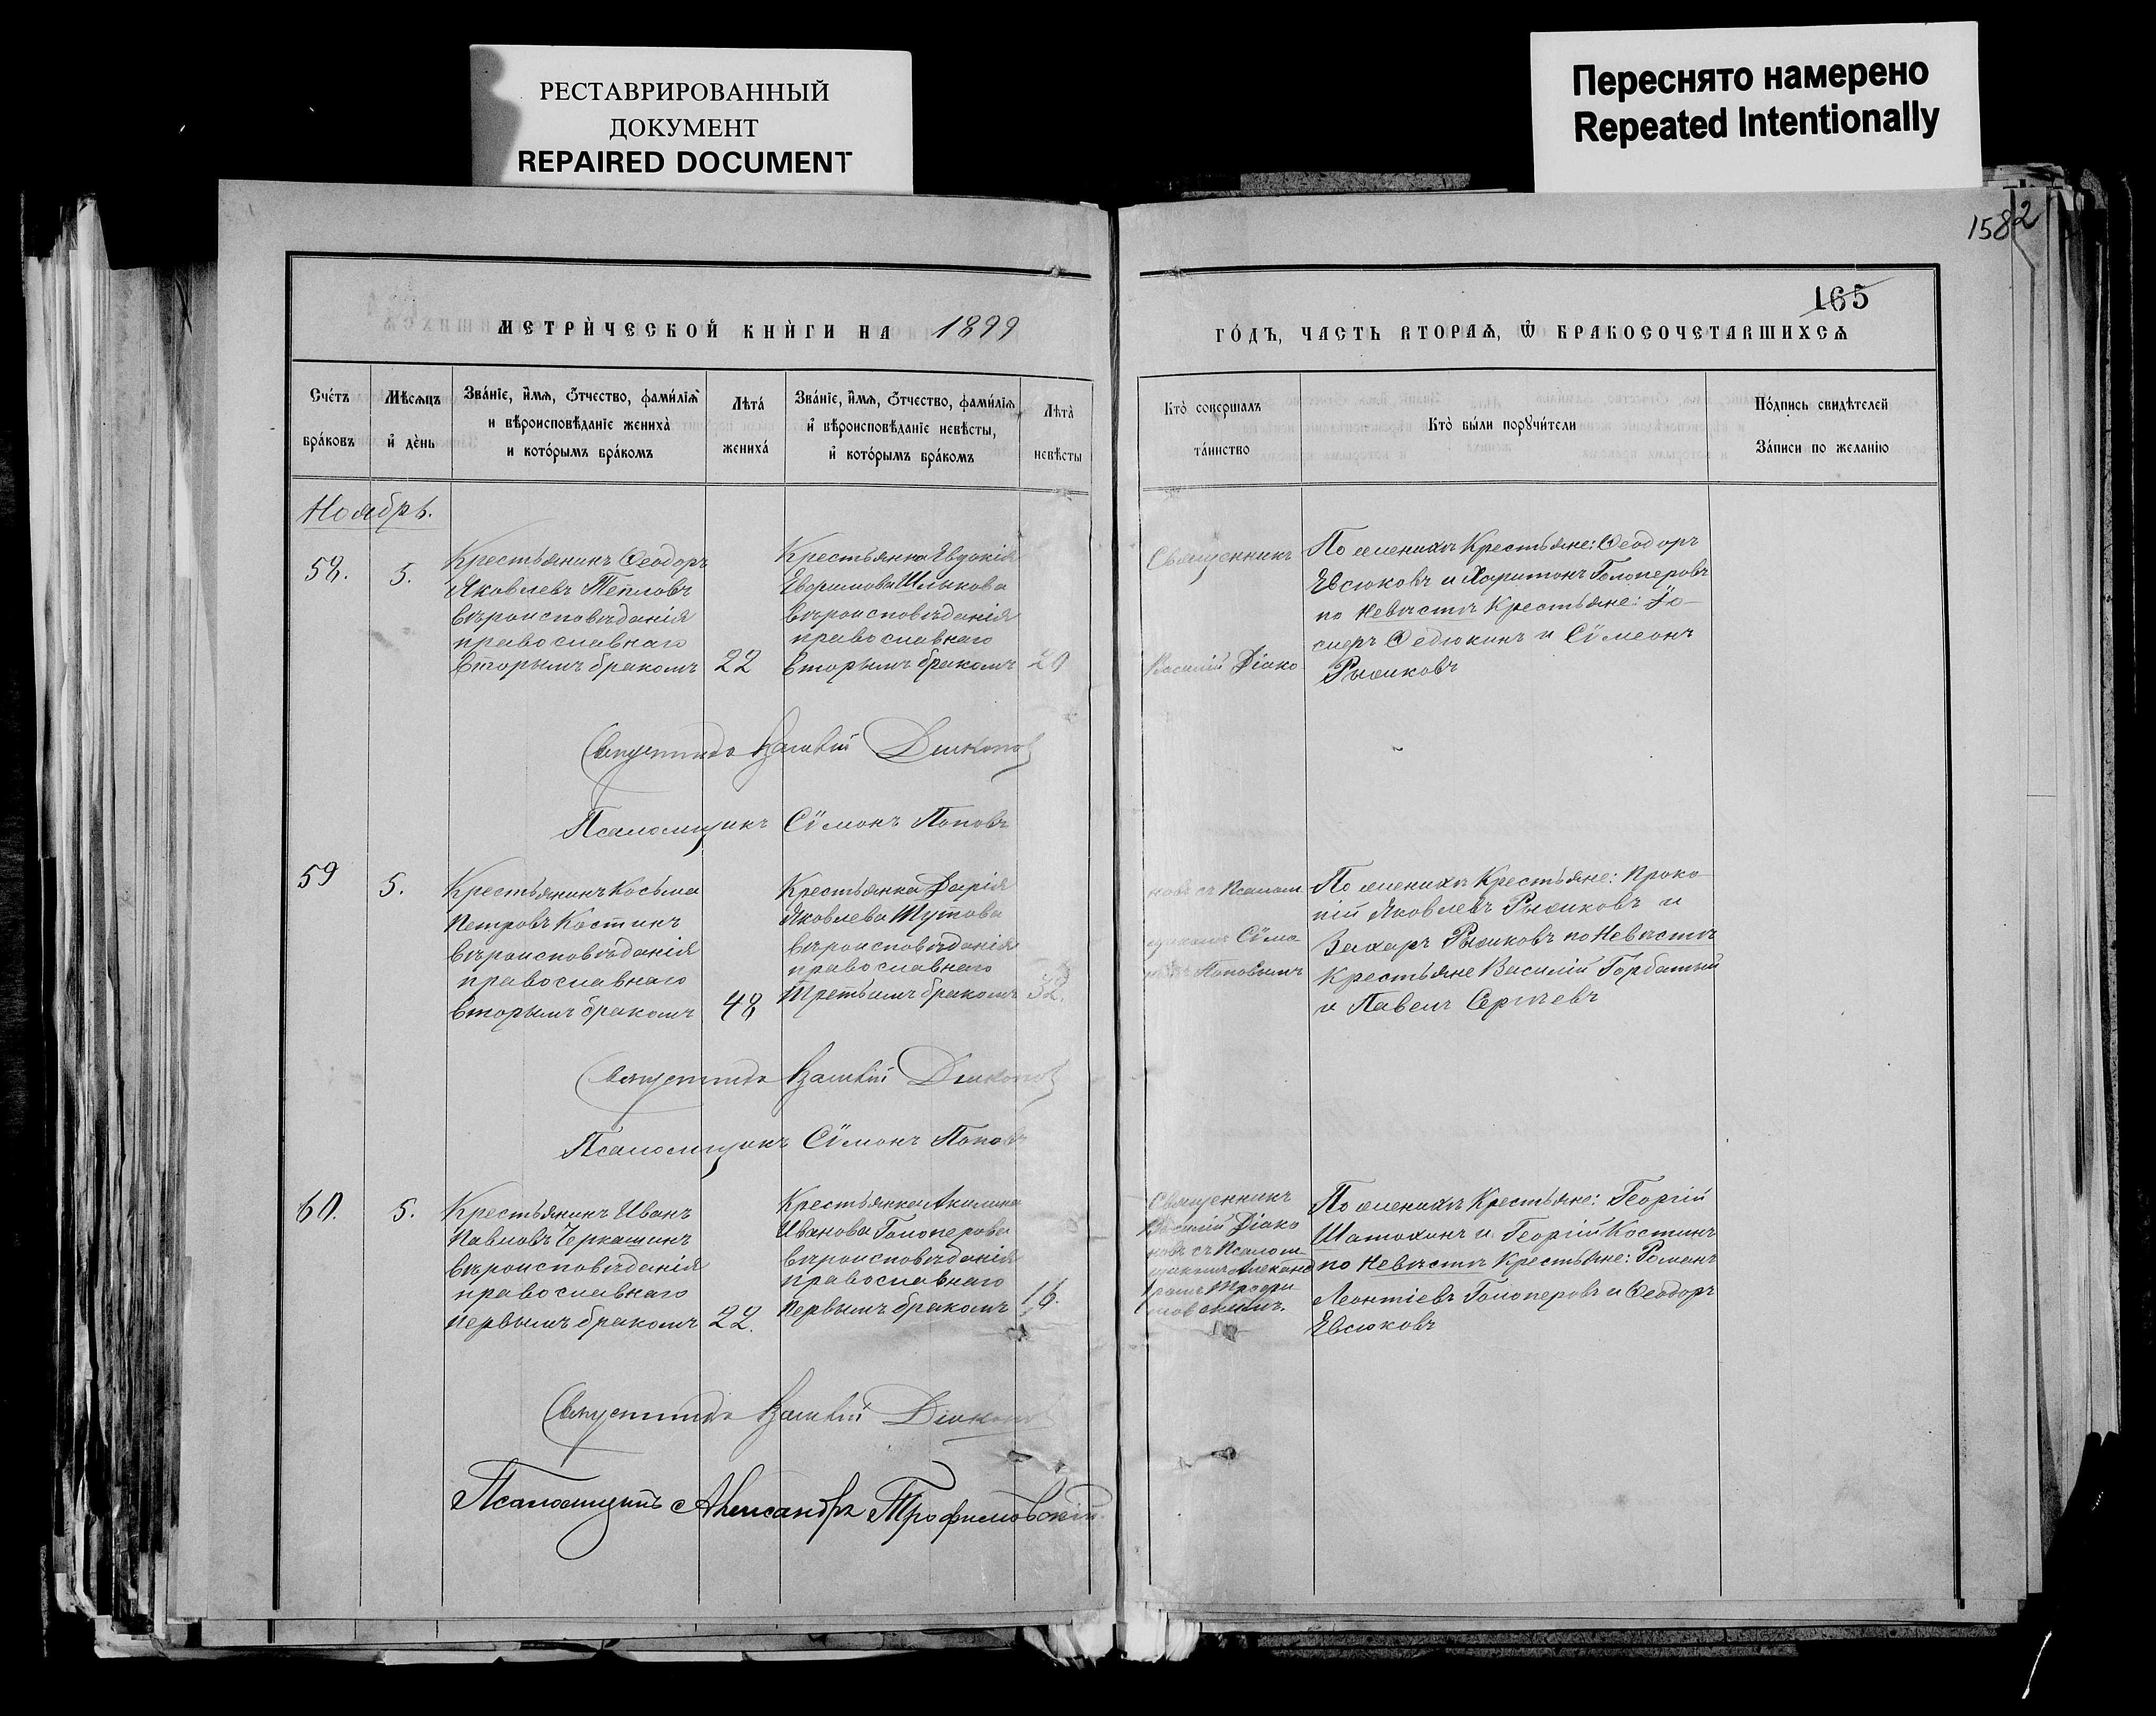 РЕСТАВРИРОВАННЫЙ
ДОКУМЕНТ
REPAIRED DOCUMENT
Переснято намерено
Repeated Intentionally
1582
165
МЕТРИ́ЧЕСКОЙ КНИ́ГИ НА 1899
ГО́ДЪ, ЧАСТЬ ВТОРАѦ, Ѡ БРАКОСОЧЕТАВШИХСѦ
Сче́тъ
бра́ковъ
Мѣсяцъ
и де́нь
Зва́нїе, и́мя, ѻтчество, фами́лїя
и вѣроисповѣданїе жениха̀
и кото́рымъ бра́комъ
Лѣта́
жениха́
Зва́нїе, и́мя, ѻтчество, фами́лїя
и вѣроисповѣданїе невѣсты,
и кото́рымъ бра́комъ
Лѣта̀
невѣсты
Кто̀ совершалъ
та́инство
Кто̀ бы́ли порꙋчи́тели
По́дпись свидѣтелей
За́писи по желанїю
Ноябрь.
58.
5.
Крестьянинъ Ѳеодоръ
Яковлевъ Тепловъ
вѣроисповѣданія
православнаго
вторымъ бракомъ
22
Крестьянка Евдокія
Евфимова Шлыкова
вѣроисповѣданія
православнаго
вторымъ бракомъ
20
Священникъ
Василій Діако
По женихѣ Крестьяне: Ѳеодоръ
Евсюковъ и Харитонъ Голоперовъ
по Невѣстѣ Крестьяне: Іо-
сифъ Ѳедюкинъ и Сѵмеонъ
Рыжиковъ
Священникъ Василій Діаконовъ
Псаломщикъ Сѵмонъ Поповъ
59
5.
Крестьянинъ Косьма
Петровъ Костинъ
вѣроисповѣданія
православнаго
вторымъ бракомъ
48
Крестьянка Дарія
Яковлева Шутова
вѣроисповѣданія
православнаго
третьимъ бракомъ
52.
новъ съ Псалом
щикомъ Сѵмо
номъ Поповымъ
По женихѣ Крестьяне: Проко-
пій Яковлевъ Рыжиковъ и
Захаръ Рыжиковъ по Невѣстѣ
Крестьяне Василій Горбатый
и Павелъ Сергѣевъ
Священникъ Василій Діаконовъ
Псаломщикъ Сѵмонъ Поповъ
60.
5.
Крестьянинъ Иванъ
Павловъ Черкашинъ
вѣроисповѣданія
православнаго
первымъ бракомъ
22.
Крестьянка Акилина
Иванова Голоперова
вѣроисповѣданія
православнаго
первымъ бракомъ
16.
Священникъ
Василій Діако
новъ съ Псалом
щикомъ Александ
ромъ Трофи
мовскимъ.
По женихѣ Крестьяне: Георгій
Шатохинъ и Георгій Костинъ
по Невѣстѣ Крестьяне: Романъ
Леонтіевъ Голоперовъ и Ѳеодоръ
Евсюковъ
Священникъ Василій Діаконовъ
Псаломщикъ Александръ Трофимовскій.